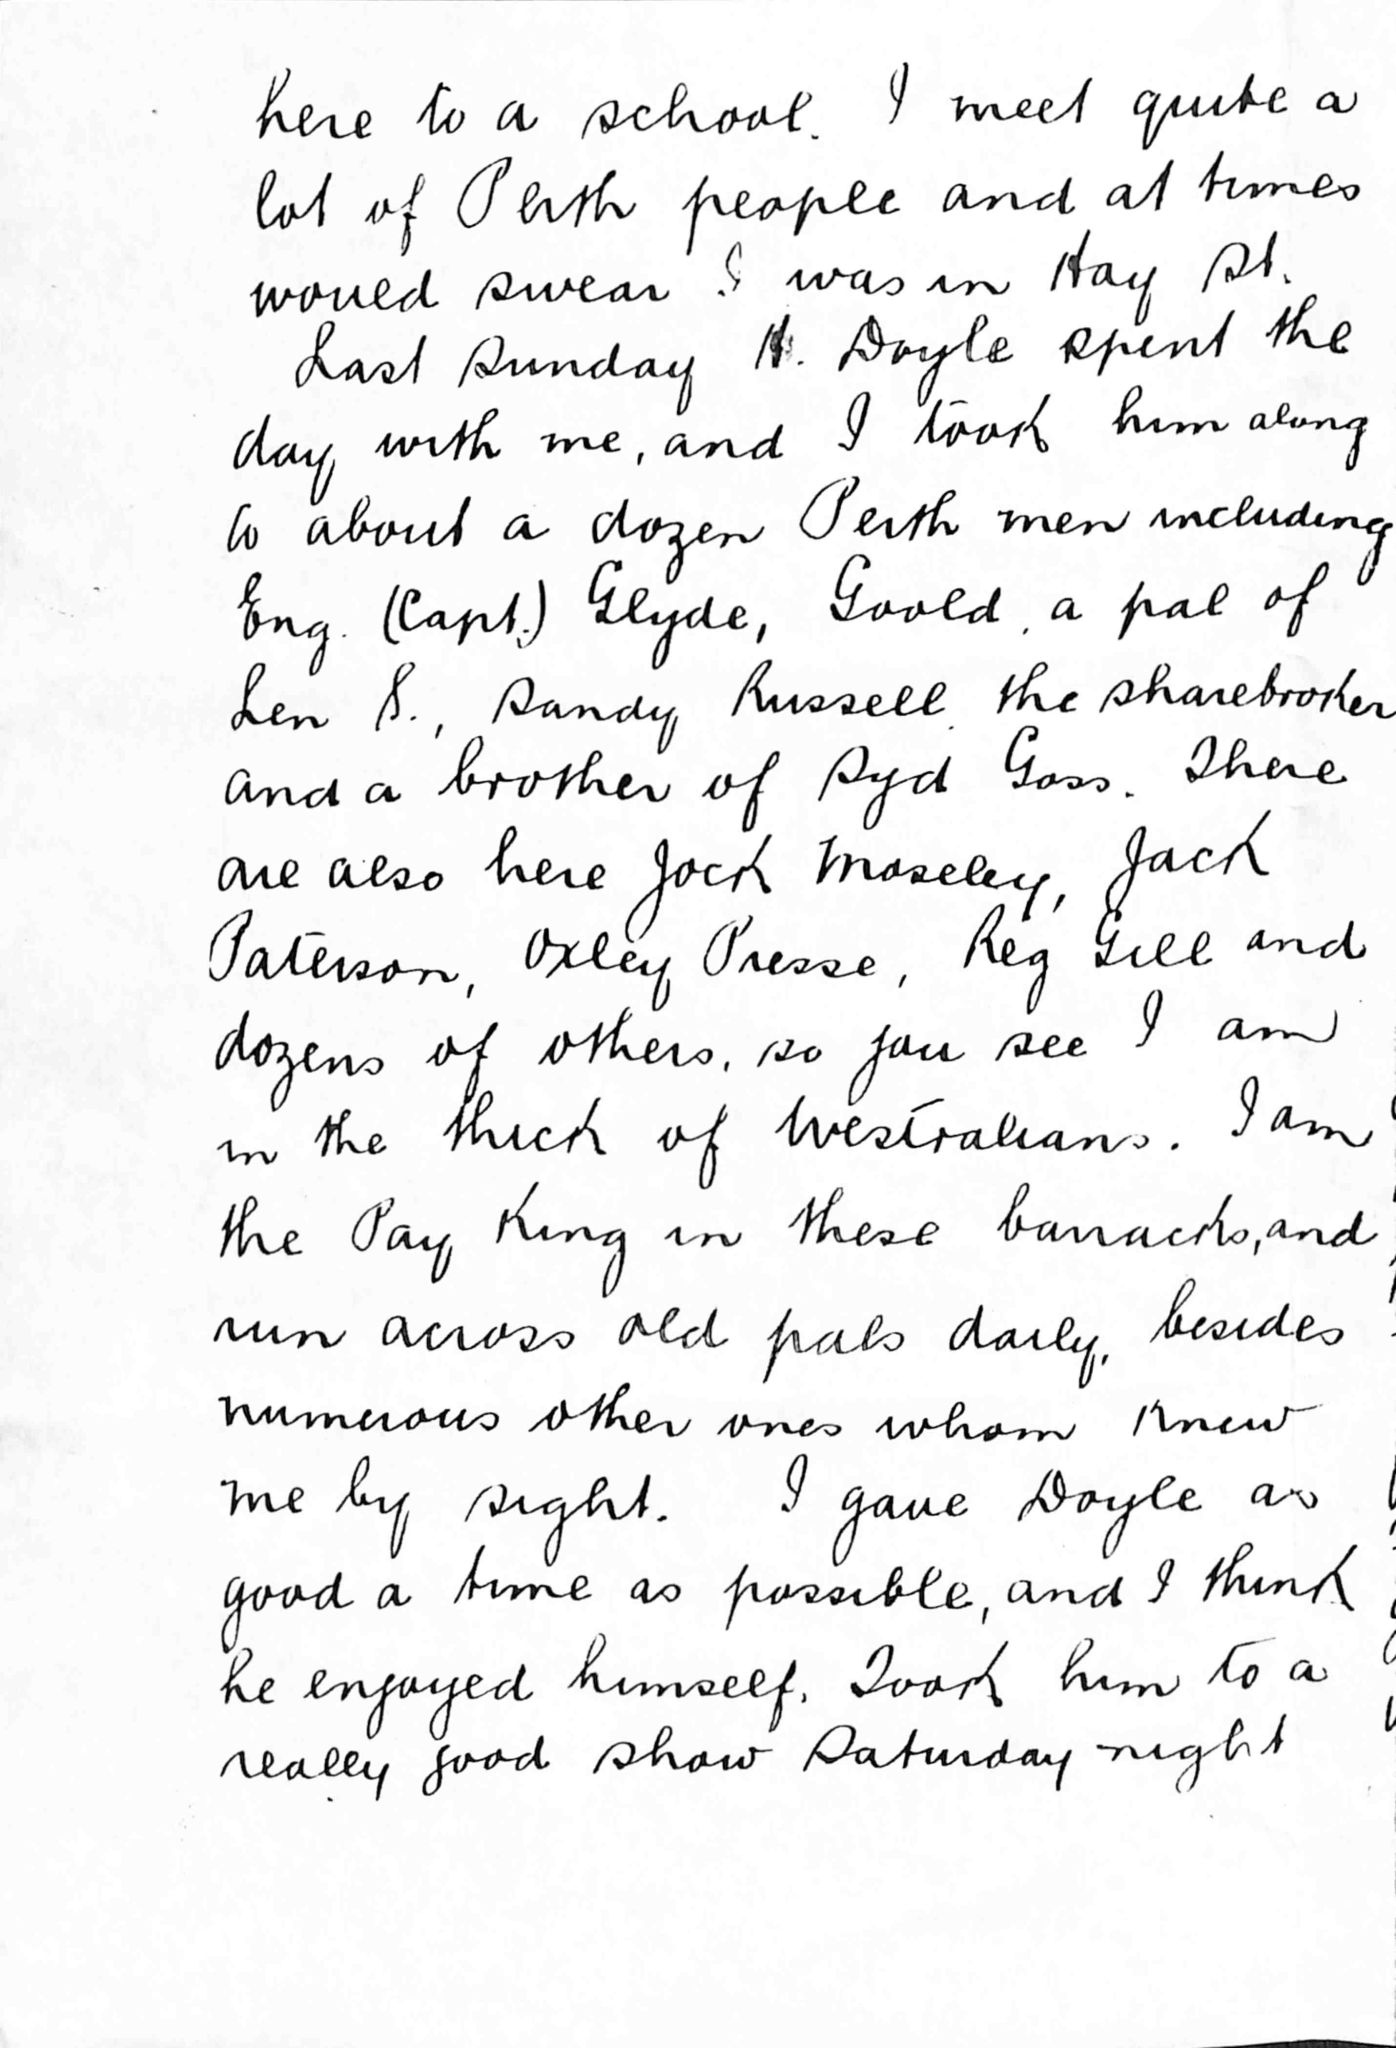 here to a school. I meet quite a
lot of Perth people and at times
would swear I was in Hay St.
Last Sunday H. Doyle spent the
day with me, and I took him along
to about a dozen Perth men including
Eng. (Capt.) Glyde, Goold, a pal of
Len S., Sandy Russell the sharebroker
and a brother of Syd Goss. There
are also here Jock Moseley, Jack
Paterson, Oxley Presse, Reg Gill and
dozens of others, so you see I am
in the thick of Westralians. I am
the Pay King in these barracks, and
run across old pals daily, besides
numerous other ones whom knew
me by sight. I gave Doyle as
good a time as possible, and I think
he enjoyed himself. Took him to a
really good show Saturday night